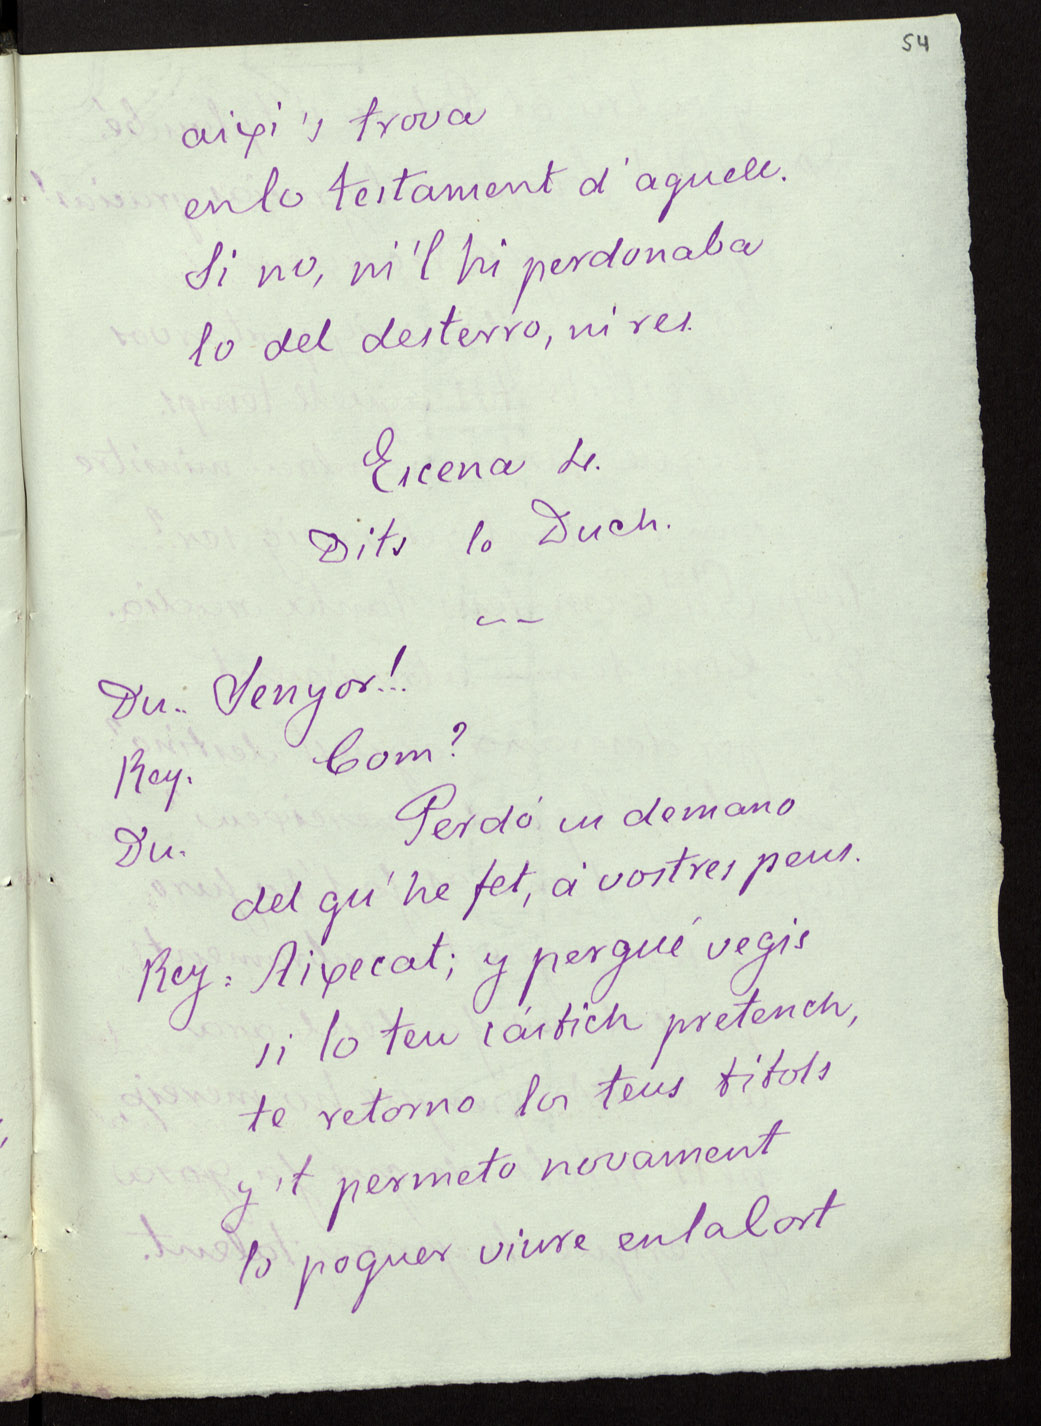 54
aixi's trova
en lo testament d'aquell.
Si no, ni'l hi perdonaba
lo del desterro, ni res.
Escena 4.
Dits lo Duch.
Du.. Senyor!..
Rey. Com?
Du. Perdó us demano
del qu'he fet, á vostres peus.
Rey: Aixecat; y perqué vegis
si lo teu cástich pretench,
te retorno los teus titols
y 't permeto novament
lo poguer viure en la Cort